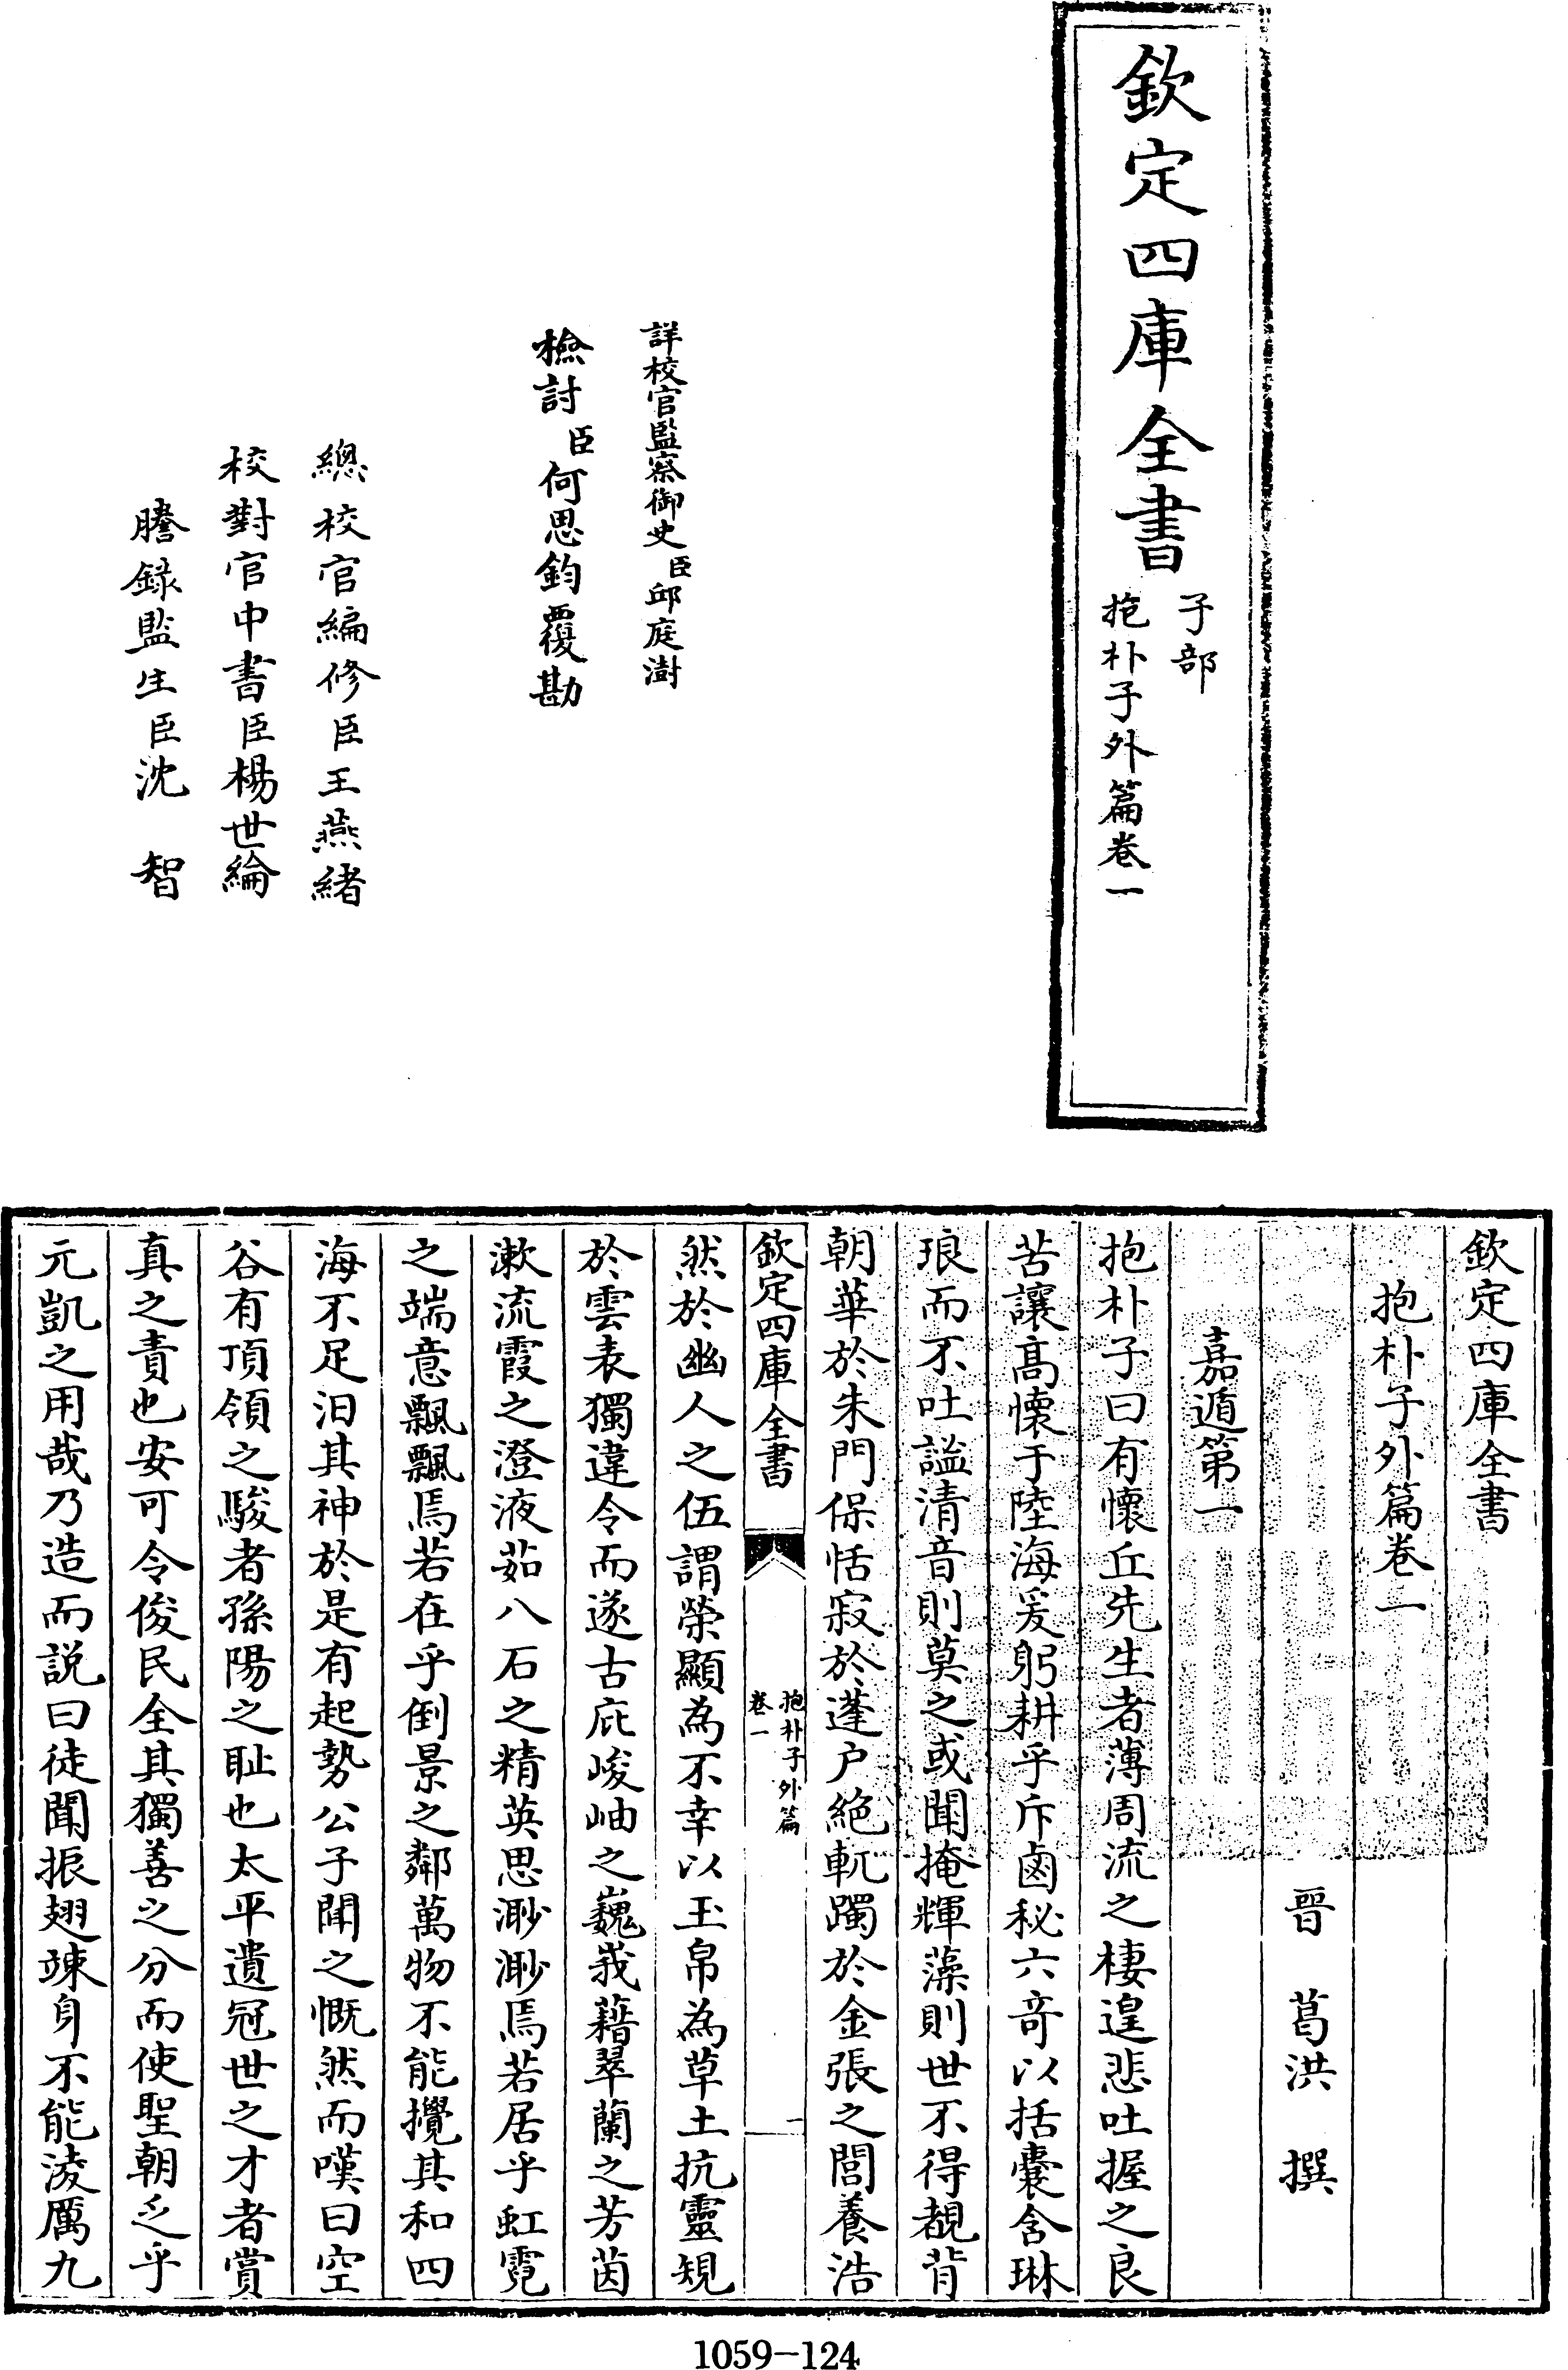 欽定四庫全書
子部
抱朴子外篇卷一
詳校官監察御史臣邱庭澍
檢討臣何思鈞覆勘
總校官編修臣王燕緒
校對官中書臣楊世綸
謄錄監生臣沈智
欽定四庫全書
抱朴子外篇卷一
晉葛洪撰
嘉遁第一
抱朴子曰有懷丘先生者薄周流之棲遑悲吐握之良
苦讓髙懷于陸海爰躬耕乎斥鹵秘六竒以括囊含琳
琅而不吐謐清音則莫之或聞掩輝藻則世不得覩背
朝華於朱門保恬寂於蓬户絶軏躅於金張之閭養浩
欽定四庫全書
抱朴子外篇
卷一
一
然於幽人之伍謂榮顯為不幸以玉帛為草土抗靈規
於雲表獨違令而遂古庇峻岫之巍峩藉翠蘭之芳茵
漱流霞之澄液茹八石之精英思渺渺焉若居乎虹霓
之端意飄飄焉若在乎倒景之鄰萬物不能攪其和四
海不足汩其神於是有起勢公子聞之慨然而嘆曰空
谷有項領之駿者孫陽之耻也太平遺冠世之才者賞
真之責也安可令俊民全其獨善之分而使聖朝乏乎
元凱之用哉乃造而説曰徒聞振翅竦身不能淩厲九
1059-124